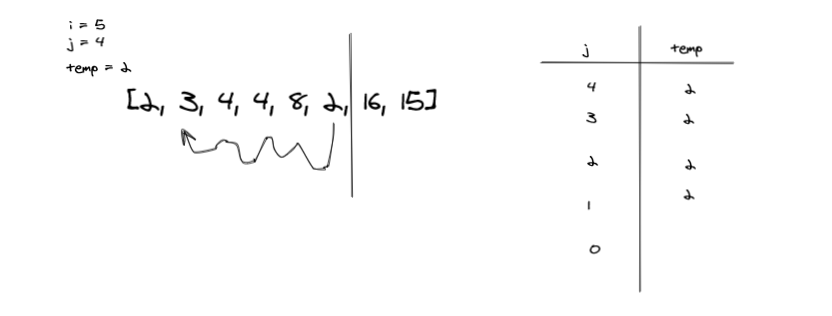 i = 5
j = 4
temp = 2
[2, 3, 4, 4, 8, 2, 16, 15]
j temp
4 2
3 2
2 2
1 2
0